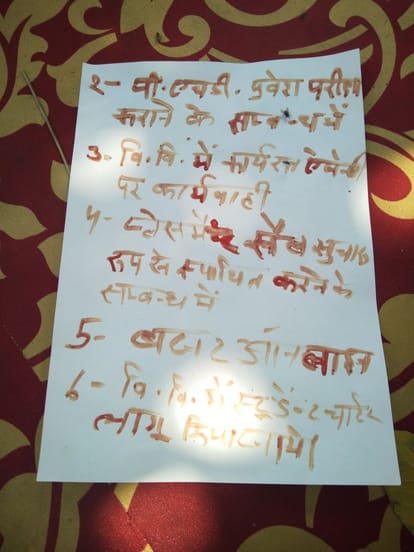 २- पी. एचडी. प्रवेश परीक्षा
कराने के सम्बन्ध में
3. वि. वि. में कार्यरत एजेन्सी
पर कार्यवाही
४- प्लेसमेन्ट सैल सुचारू
रूप से स्थापित करने के
सम्बन्ध में
5- बजट ऑनलाइन
6- वि. वि. में स्टूडेन्ट चार्टर
लागू किया जाये।